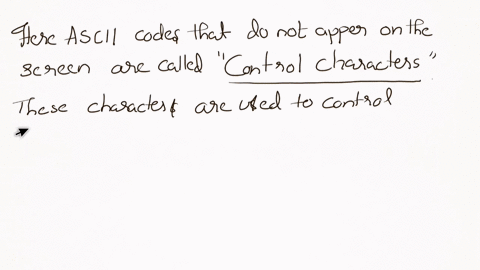 Here ASCII codes that do not apper on the
screen are called "Control characters"
These characters are used to control